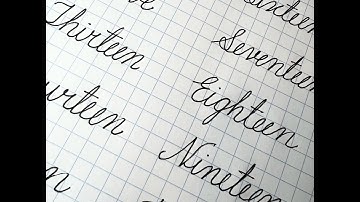 Thirteen
urteen
n
Sixteen
Seventeen
Eighteen
Nineteen